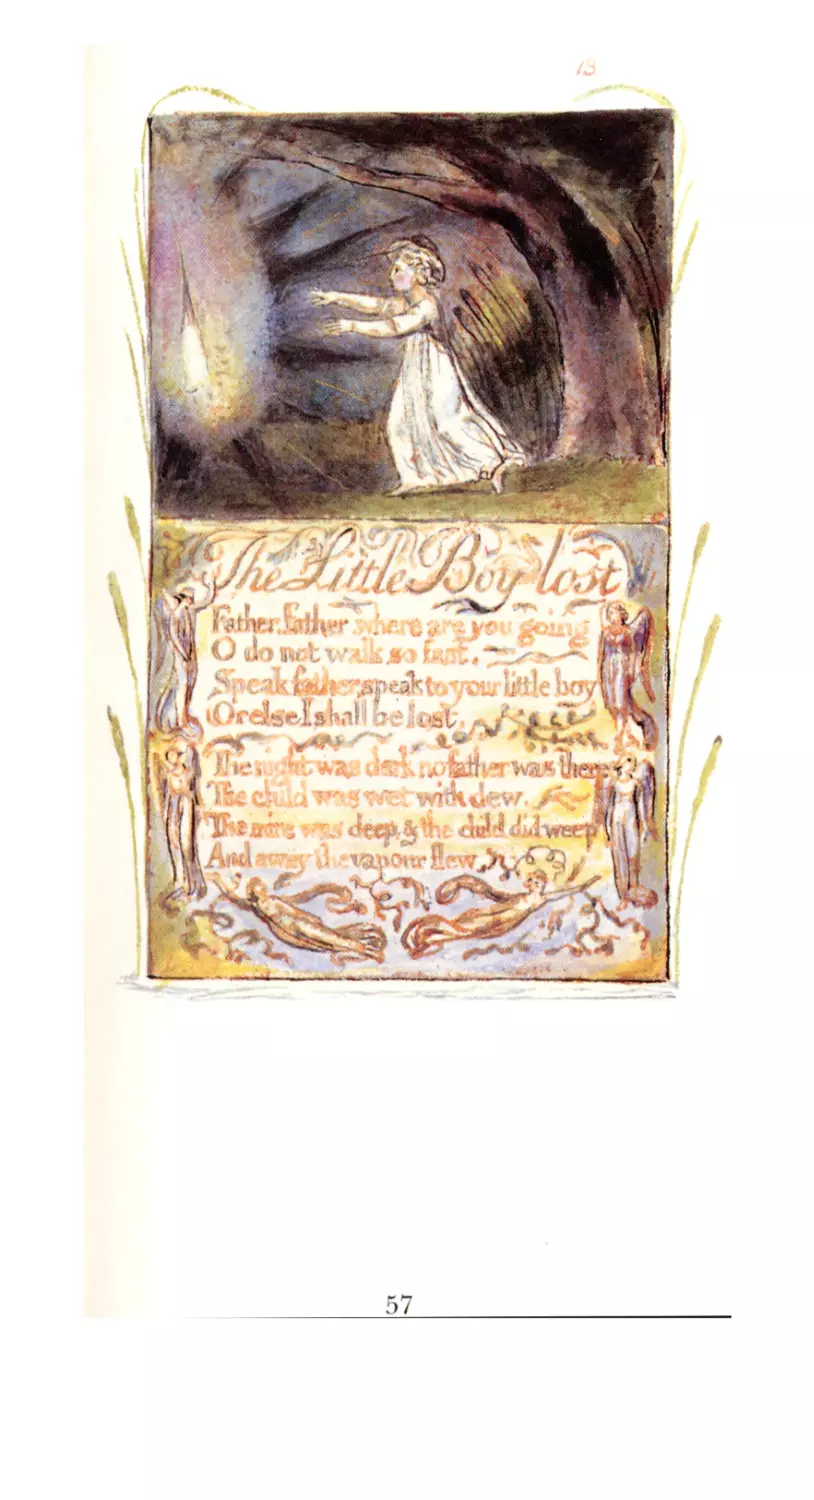 13
The Little Boy lost
Father, father where are you going
O do not walk so fast.
Speak father, speak to your little boy
Or else I shall be lost.
The night was dark no father was there
The child was wet with dew.
The mire was deep, & the child did weep
And away the vapour flew.
57